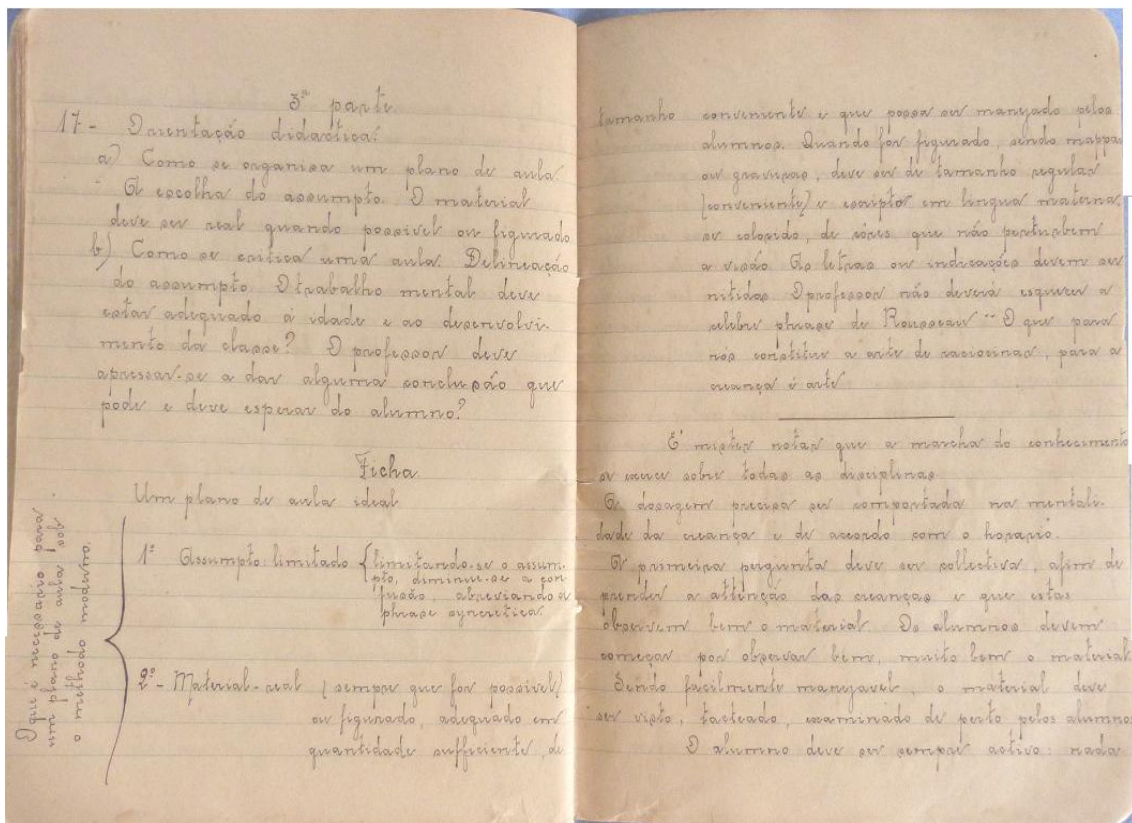 3ª parte
17 - Orientação didactica:
a) Como se organisa um plano de aula.
A escolha do assumpto. O material
deve ser real quando possivel ou figurado
b) Como se critica uma aula. Delineação
do assumpto. O trabalho mental deve
estar adequado á idade e ao desenvolvi-
mento da classe? O professor deve
apressar-se a dar alguma conclusão que
pode e deve esperar do alumno?
Ficha
Um plano de aula ideal
O que é necessario para
um plano de aula pelo
o methodo moderno.
1º Assumpto limitado { limitando-se o assum-
pto, diminue-se a con-
fusão, abreviando a
phrase syncretica
2º - Material - real (sempre que for possivel)
ou figurado, adequado em
quantidade sufficiente, de
tamanho conveniente e que possa ser manejado pelos
alumnos. Quando for figurado, sendo mappas
ou gravuras, deve ser de tamanho regular
(conveniente) e escriptos em lingua materna,
se colorido, de côres que não perturbem
a visão. As letras ou indicações devem ser
nitidas. O professor não deverá esquecer a
celebre phrase de Rousseau "O que para
nós constitue a arte de raciocinar, para a
creança é arte
E' mister notar que a marcha do conhecimento
se exerce sobre todas as disciplinas.
A dosagem precisa ser comportada na mentali-
dade da creança e de accordo com o horario.
A primeira pergunta deve ser collectiva, afim de
prender a attenção das creanças e que estas
observem bem o material. Os alumnos devem
começar por observar bem, muito bem o material
Sendo facilmente manejavel, o material deve
ser visto, tacteado, examinado de perto pelos alumnos
O alumno deve ser sempre activo: nada